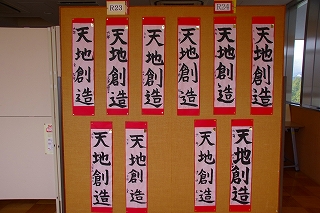 R23
R24
天地創造
天地創造
天地創造
天地創造
天地創造
天地創造
天地創造
天地創造
天地創造
天地創造